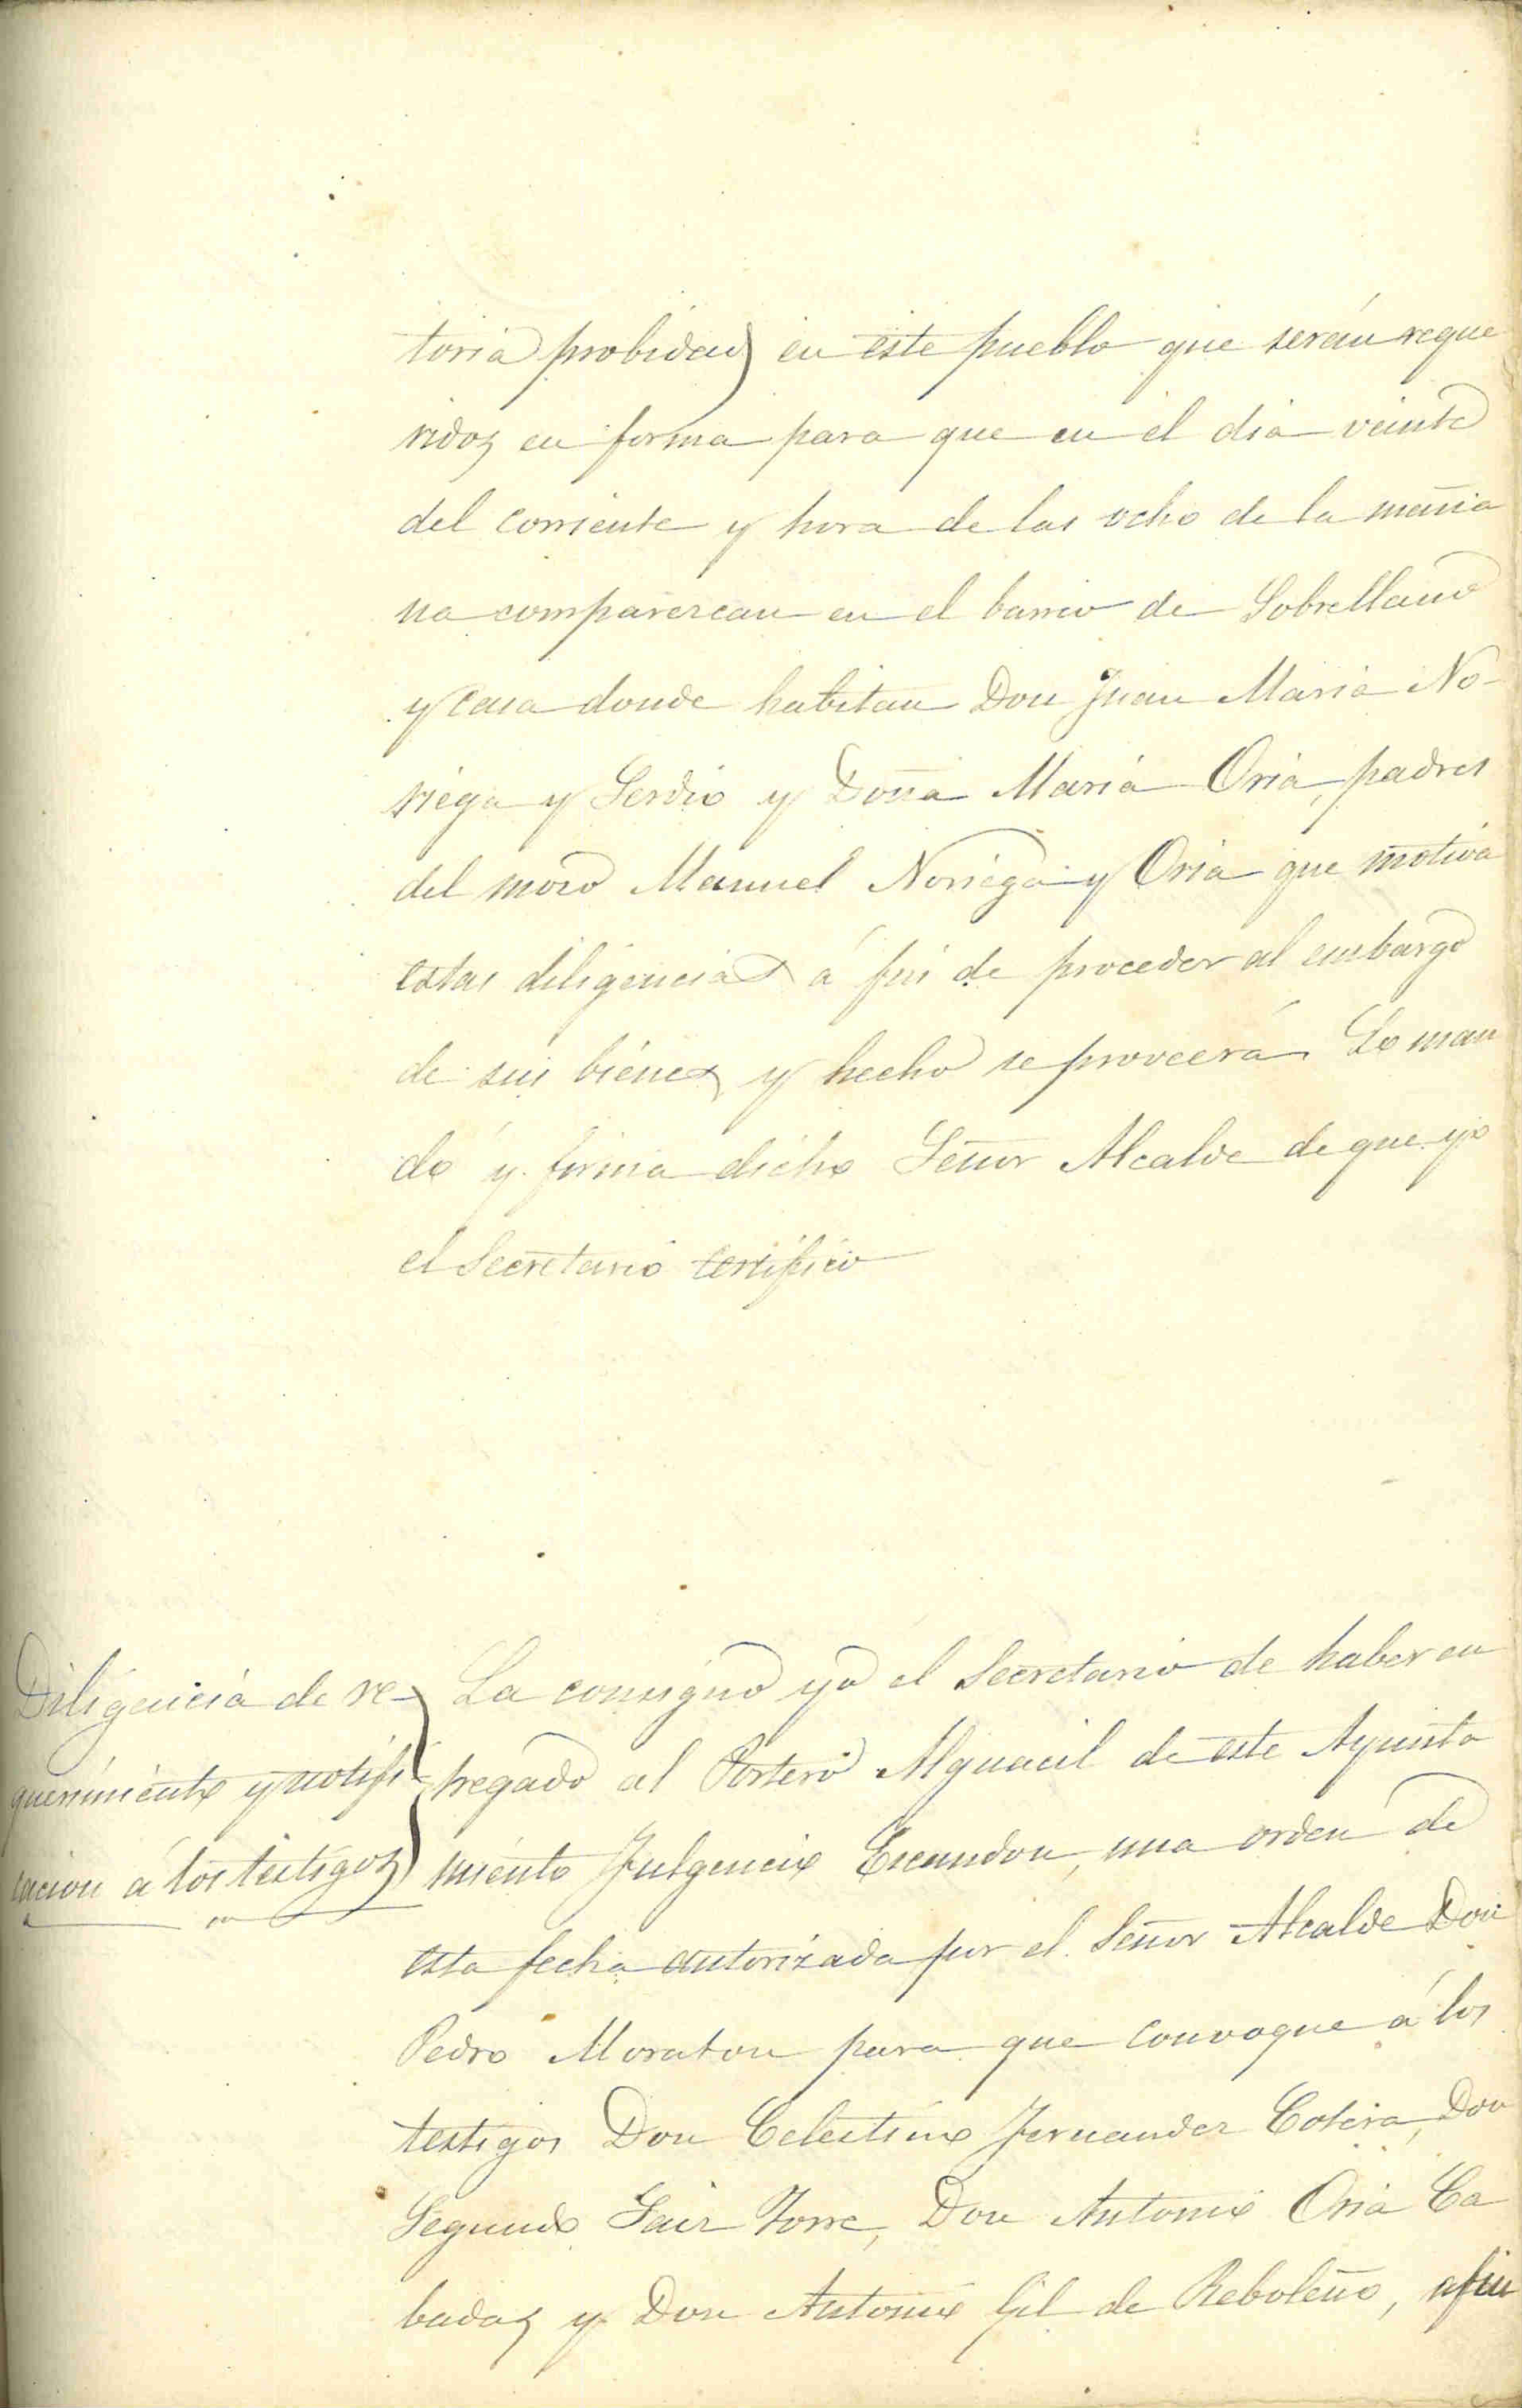 toria probidad en este pueblo que serán reque
ridos en forma para que en el dia veinte
del corriente y hora de las ocho de la maña
na comparezcan en el barrio de Sobrellano
y casa donde habitan Don Juan Maria No-
riega y Serdio y Doña Maria Oria, padres
del mozo Manuel Noriega y Oria que motiva
estas diligencias á fin de proceder al embargo
de sus bienes y hecho se proveerá. Lo man
do y firma dicho Señor Alcalde de que yo
el Secretario certifico
Diligencia de re-
querimiento y notifi
cacion á los testigos
La consigno yo el Secretario de haber en
tregado al Portero Alguacil de este Ayunta
miento Fulgencio Escandon, una orden de
esta fecha autorizada por el Señor Alcalde Don
Pedro Moraton para que convoque á los
testigos Don Celestino Fernandez Cotera, Don
Segundo Saiz Torre, Don Antonio Oria Ca
badas y Don Antonio Gil de Reboleño, afin